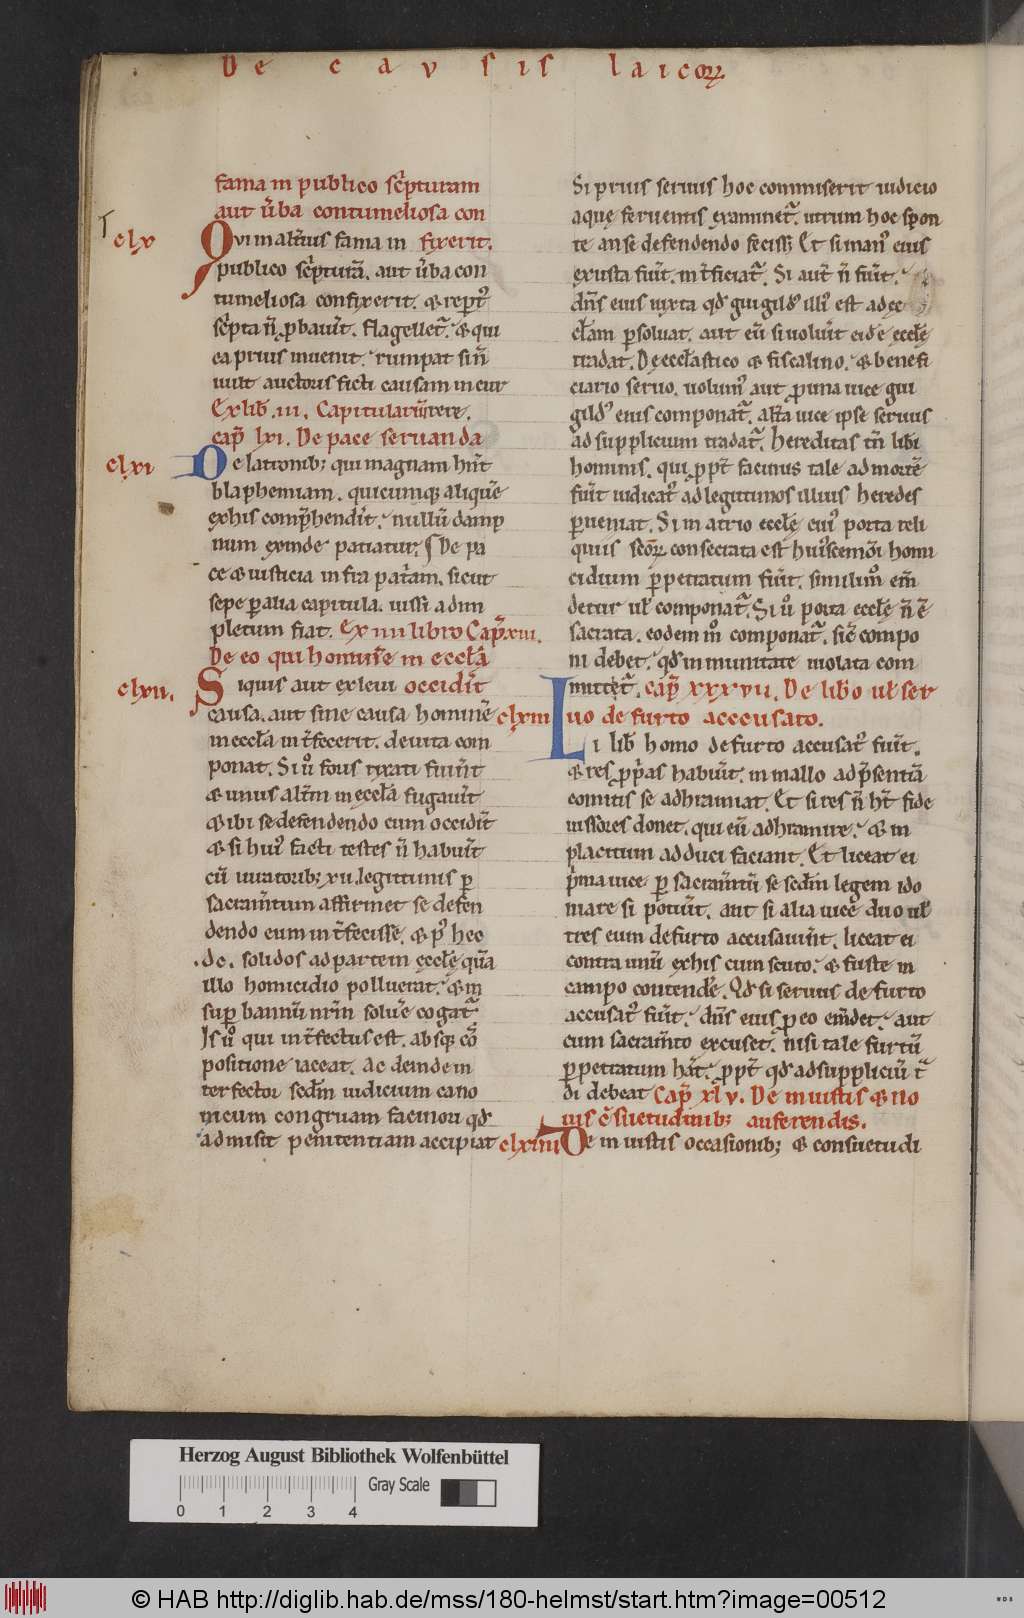 De causis laicoꝝ
fama in publico sc̄pturam
aut ũba contumeliosa con
clx
Qvi in alt̃ius fama in fixerit.
publico sc̄pturā. aut ũba con
tumeliosa confixerit. & rep̲t᷒
sc̄pta ñ ꝓbauit̃. flagellet᷑. & qui
ea prius inuenit. rumpat si ñ
uult auctoris ficti causam incur
Ex lib̃ .iii. Capitularium rere.
cap̃ lxi. De pace seruanda
clxi
De latronib; qui magnam hñt
blaphemiam. quicumq; aliquē
ex his comp̃hendit̃. nullū damp
num exinde patiatur. De pa
ce & iusticia infra pat̃am. sicut
sepe ꝑ alia capitula. iussi adim
pletum fiat. Ex iiii libro Cap̃ xiii.
De eo qui hominē in eccl̃a
clxii.
Siquis aut ex leui occidit̃
causa. aut sine causa hominē
in eccl̃a int̃fecerit. de uita com
ponat. Si ů foris rixati fuint̃
& unus alt̃m in eccl̃a fugauit̃
& ibi se defendendo eum occidit̃
& si hui᷒ facti testes ñ habuit̃
cū iuratorib; xii. legittimis ꝑ
sacram̃tum affirmet se defen
dendo eum int̃fecisse. & p᷒ hec
.dc. solidos ad partem eccl̃ę quā
illo homicidio polluerat. & in
suꝑ bannū nr̃m soluẽ cogat᷑
Is ů qui int̃fectus est. absq; cō
positione iaceat. Ac deinde in
terfector scdm̃ iudicium cano
nicum congruam facinori qđ
admisit penitentiam accipiat
Si prius seruus hoc commiserit iudicio
aquę feruentis examinet᷑. utrum hoc spon
te an se defendendo feciss; Et si man᷒ eius
exusta fuit̃. int̃ficiat᷑. Si aut̃ ñ fuit̃.
dñs eius iuxta qđ guigild᷒ illi᷒ est ad ec
cl̃am ꝑsoluat. aut eū si uoluit̃ eidē eccl̃ę
tradat. De eccl̃astico & fiscalino. & benefi
ciario seruo. uolum᷒ aut ꝓ una uice gui
gild᷒ eius componat᷑. alt̃a uice ipse seruus
ad supplicium tradat᷑. hereditas tñ libi
hominis. qui ꝓpt̃ facinus tale ad mortē
fuit̃ iudicat᷒ ad legittimos illius heredes
ꝑueniat. Si in atrio eccl̃ę cui᷒ porta reli
quiis scōꝝ consecrata est hui᷒scemōi homi
cidium ꝑpetratum fuit̃. simili mº em̃
detur ut̃ componat᷑. Si ů porta eccl̃ę ñ ē
sacrata. eodem mº componat᷑. sič compo
ni debet. qđ inmunitate uiolata com
mittet᷑. cap̃ xxxvii. De libo ut̃ ser
clxiii
uo de furto accusato.
Li lib̃ homo de furto accusat᷒ fuit̃.
& res ꝓp̃as habuit̃. in mallo ad p̃sentiā
comitis se adhramiat. Et si res ñ ht̃ fide
iussores donet. qui eū adhramire. & in
placitum adduci faciant. Et liceat ei
p̃ma uice ꝑ sacram̃tū se scdm̃ legem ido
niare si potuit̃. aut si alia uice duo ut̃
tres eum de furto accusauint̃. liceat ei
contra unū ex his cum scuto. & fuste in
campo contendẽ. Qđ si seruus de furto
accusat᷒ fuit̃. dñs eius ꝓ eo em̃det. aut
cum sacram̃to excuset. nisi tale furtū
ꝑpetratum hãt. ꝓpt̃ qđ ad suppliciū t᷑
di debeat cap̃ xlv. De iniustis & no
uis c̃suetudinib; auferendis.
clxiiii
De iniustis occasionib; & consuetudi
Herzog August Bibliothek Wolfenbüttel
Gray Scale
0 1 2 3 4
© HAB http://diglib.hab.de/mss/180-helmst/start.htm?image=00512